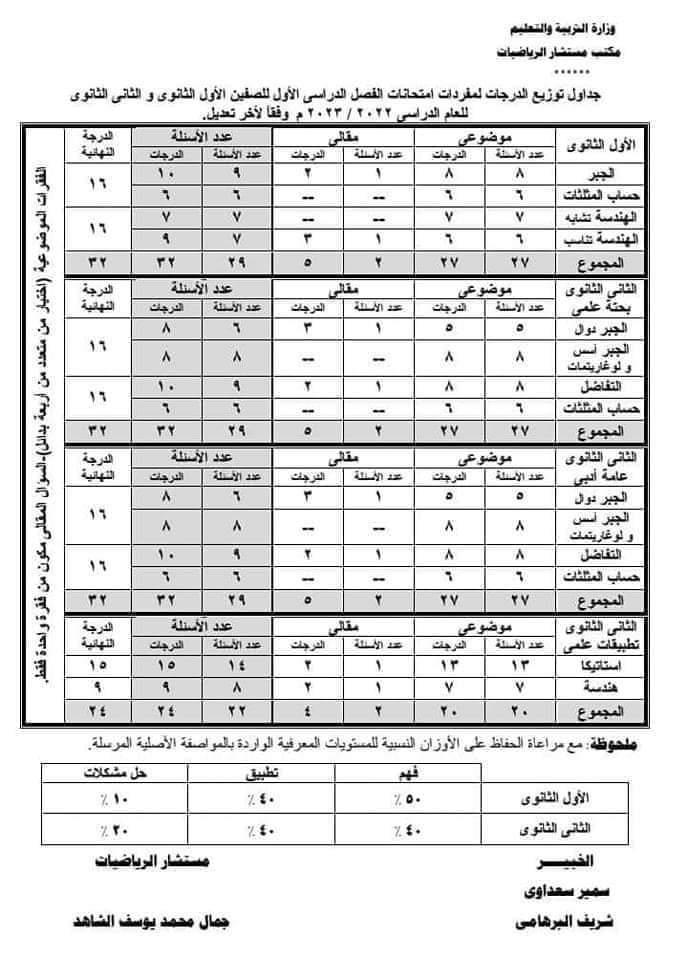 وزارة التربية والتعليم
مكتب مستشار الرياضيات
******
جداول توزيع الدرجات لمفردات امتحانات الفصل الدراسى الأول للصفين الأول الثانوى و الثانى الثانوى
للعام الدراسى ٢٠٢٢ / ٢٠٢٣ م وفقاً لآخر تعديل.
الأول الثانوى موضوعي مقالي عدد الأسئلة الدرجة النهائية
عدد الأسئلة الدرجات عدد الأسئلة الدرجات عدد الأسئلة الدرجات
الجبر ٨ ٨ ١ ٢ ٩ ١٠ ١٦
حساب المثلثات ٦ ٦ -- -- ٦ ٦
الهندسة تشابه ٧ ٧ -- -- ٧ ٧ ١٦
الهندسة تناسب ٦ ٦ ١ ٣ ٧ ٩
المجموع ٢٧ ٢٧ ٢ ٥ ٢٩ ٣٢ ٣٢
الثانى الثانوى بحتة علمى موضوعي مقالي عدد الأسئلة الدرجة النهائية
عدد الأسئلة الدرجات عدد الأسئلة الدرجات عدد الأسئلة الدرجات
الجبر دوال ٥ ٥ ١ ٣ ٦ ٨ ١٦
الجبر أسس و لوغاريتمات ٨ ٨ -- -- ٨ ٨
التفاضل ٨ ٨ ١ ٢ ٩ ١٠ ١٦
حساب المثلثات ٦ ٦ -- -- ٦ ٦
المجموع ٢٧ ٢٧ ٢ ٥ ٢٩ ٣٢ ٣٢
الثانى الثانوى عامة أدبي موضوعي مقالي عدد الأسئلة الدرجة النهائية
عدد الأسئلة الدرجات عدد الأسئلة الدرجات عدد الأسئلة الدرجات
الجبر دوال ٥ ٥ ١ ٣ ٦ ٨ ١٦
الجبر أسس و لوغاريتمات ٨ ٨ -- -- ٨ ٨
التفاضل ٨ ٨ ١ ٢ ٩ ١٠ ١٦
حساب المثلثات ٦ ٦ -- -- ٦ ٦
المجموع ٢٧ ٢٧ ٢ ٥ ٢٩ ٣٢ ٣٢
الثانى الثانوى تطبيقات علمى موضوعي مقالي عدد الأسئلة الدرجة النهائية
عدد الأسئلة الدرجات عدد الأسئلة الدرجات عدد الأسئلة الدرجات
استاتيكا ١٣ ١٣ ١ ٢ ١٤ ١٥ ١٥
هندسة ٧ ٧ ١ ٢ ٨ ٩ ٩
المجموع ٢٠ ٢٠ ٢ ٤ ٢٢ ٢٤ ٢٤
الفقرات الموضوعية (اختيار من متعدد من أربعة بدائل)-السؤال المقالى مكون من فقرة واحدة فقط.
ملحوظة: مع مراعاة الحفاظ على الأوزان النسبية للمستويات المعرفية الواردة بالمواصفة الأصلية المرسلة.
فهم تطبيق حل مشكلات
الأول الثانوى ٥٠ ٪ ٤٠ ٪ ١٠ ٪
الثانى الثانوى ٤٠ ٪ ٤٠ ٪ ٢٠ ٪
الخبير مستشار الرياضيات
سمير سعداوى
شريف البرهامى جمال محمد يوسف الشاهد